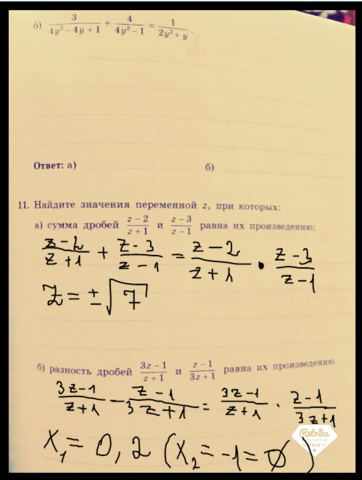 б) 3/(4y² − 4y + 1) + 4/(4y² − 1) = 1/(2y² + y).
Ответ: а) б)
11. Найдите значения переменной z, при которых:
а) сумма дробей (z − 2)/(z + 1) и (z − 3)/(z − 1) равна их произведению;
(z−2)/(z+1) + (z−3)/(z−1) = (z−2)/(z+1) · (z−3)/(z−1)
Z = ±√7
б) разность дробей (3z − 1)/(z + 1) и (z − 1)/(3z + 1) равна их произведению.
(3z−1)/(z+1) − (z−1)/(3z+1) = (3z−1)/(z+1) · (z−1)/(3z+1)
x₁ = 0,2 (x₂ = −1 = ∅)